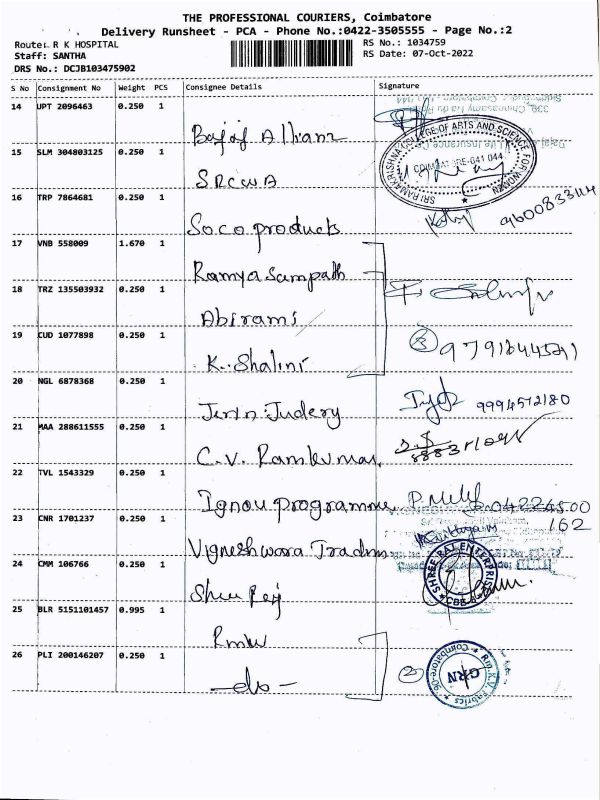 THE PROFESSIONAL COURIERS, Coimbatore
Delivery Runsheet - PCA - Phone No.:0422-3505555 - Page No.:2
Route: R K HOSPITAL
RS No.: 1034759
Staff: SANTHA
RS Date: 07-Oct-2022
DRS No.: DCJB103475902
S No Consignment No Weight PCS Consignee Details Signature
14 UPT 2096463 0.250 1 Bajaj Allianz
15 SLM 304803125 0.250 1 SRCWA
SRI RAMAKRISHNA COLLEGE OF ARTS AND SCIENCE FOR WOMEN
COIMBATORE-641 044
16 TRP 7864681 0.250 1 Soco products
17 VNB 558009 1.670 1 Ramya Sampath
18 TRZ 135503932 0.250 1 Abirami
19 CUD 1077898 0.250 1 K. Shalini
20 NGL 6878368 0.250 1 9994572180
21 MAA 288611555 0.250 1 C.V. Ramkumar
22 TVL 1543329 0.250 1 Ignou programme
23 CNR 1701237 0.250 1 Vigneshwara Traders
162
24 CMM 106766 0.250 1 Shree Raj
SHREE RAJ ENTERPRISE
25 BLR 5151101457 0.995 1 Rmkv
26 PLI 200146207 0.250 1 -do-
2
GRN